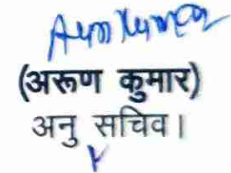 Arun Kumar
(अरूण कुमार)
अनु सचिव।